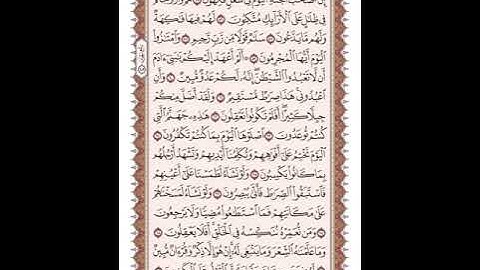 إِنَّ أَصْحَٰبَ ٱلْجَنَّةِ ٱلْيَوْمَ فِى شُغُلٍ فَٰكِهُونَ ۝ هُمْ وَأَزْوَٰجُهُمْ
فِى ظِلَٰلٍ عَلَى ٱلْأَرَآئِكِ مُتَّكِـُٔونَ ۝ لَهُمْ فِيهَا فَٰكِهَةٌ
وَلَهُم مَّا يَدَّعُونَ ۝ سَلَٰمٌ قَوْلًا مِّن رَّبٍّ رَّحِيمٍ ۝ وَٱمْتَٰزُوا۟
ٱلْيَوْمَ أَيُّهَا ٱلْمُجْرِمُونَ ۝ أَلَمْ أَعْهَدْ إِلَيْكُمْ يَٰبَنِىٓ ءَادَمَ
أَن لَّا تَعْبُدُوا۟ ٱلشَّيْطَٰنَ ۖ إِنَّهُۥ لَكُمْ عَدُوٌّ مُّبِينٌ ۝ وَأَنِ
ٱعْبُدُونِى ۚ هَٰذَا صِرَٰطٌ مُّسْتَقِيمٌ ۝ وَلَقَدْ أَضَلَّ مِنكُمْ
جِبِلًّا كَثِيرًا ۖ أَفَلَمْ تَكُونُوا۟ تَعْقِلُونَ ۝ هَٰذِهِۦ جَهَنَّمُ ٱلَّتِى
كُنتُمْ تُوعَدُونَ ۝ ٱصْلَوْهَا ٱلْيَوْمَ بِمَا كُنتُمْ تَكْفُرُونَ ۝
ٱلْيَوْمَ نَخْتِمُ عَلَىٰٓ أَفْوَٰهِهِمْ وَتُكَلِّمُنَآ أَيْدِيهِمْ وَتَشْهَدُ أَرْجُلُهُم
بِمَا كَانُوا۟ يَكْسِبُونَ ۝ وَلَوْ نَشَآءُ لَطَمَسْنَا عَلَىٰٓ أَعْيُنِهِمْ
فَٱسْتَبَقُوا۟ ٱلصِّرَٰطَ فَأَنَّىٰ يُبْصِرُونَ ۝ وَلَوْ نَشَآءُ لَمَسَخْنَٰهُمْ
عَلَىٰ مَكَانَتِهِمْ فَمَا ٱسْتَطَٰعُوا۟ مُضِيًّا وَلَا يَرْجِعُونَ ۝
وَمَن نُّعَمِّرْهُ نُنَكِّسْهُ فِى ٱلْخَلْقِ ۖ أَفَلَا يَعْقِلُونَ ۝
وَمَا عَلَّمْنَٰهُ ٱلشِّعْرَ وَمَا يَنۢبَغِى لَهُۥٓ ۚ إِنْ هُوَ إِلَّا ذِكْرٌ وَقُرْءَانٌ مُّبِينٌ
۝ لِّيُنذِرَ مَن كَانَ حَيًّا وَيَحِقَّ ٱلْقَوْلُ عَلَى ٱلْكَٰفِرِينَ ۝